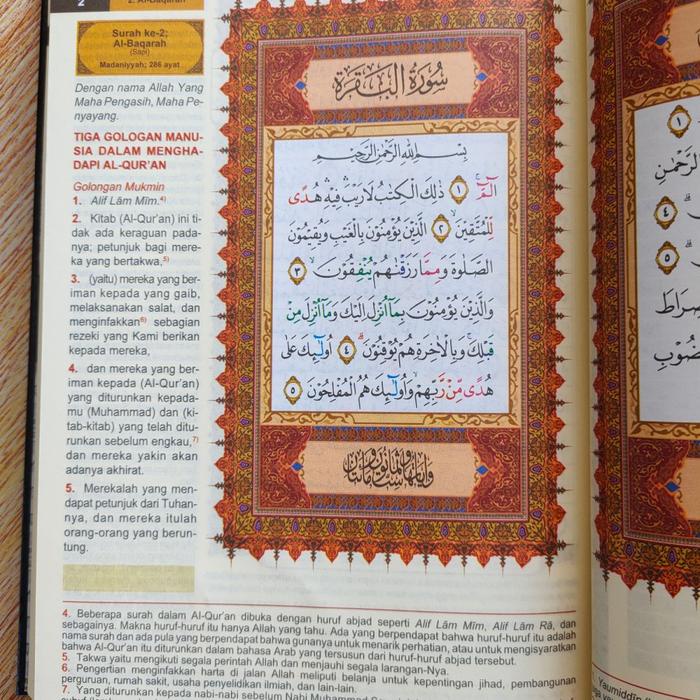 2
2. Al-Baqarah
Surah ke-2;
Al-Baqarah
(Sapi)
Madaniyyah; 286 ayat
Dengan nama Allah Yang
Maha Pengasih, Maha Pe-
nyayang.
TIGA GOLOGAN MANU-
SIA DALAM MENGHA-
DAPI AL-QUR'AN
Golongan Mukmin
1. Alif Lām Mīm.4)
2. Kitab (Al-Qur'an) ini ti-
dak ada keraguan pada-
nya; petunjuk bagi mere-
ka yang bertakwa,5)
3. (yaitu) mereka yang ber-
iman kepada yang gaib,
melaksanakan salat, dan
menginfakkan6) sebagian
rezeki yang Kami berikan
kepada mereka,
4. dan mereka yang ber-
iman kepada (Al-Qur'an)
yang diturunkan kepada-
mu (Muhammad) dan (ki-
tab-kitab) yang telah ditu-
runkan sebelum engkau,7)
dan mereka yakin akan
adanya akhirat.
5. Merekalah yang men-
dapat petunjuk dari Tuhan-
nya, dan mereka itulah
orang-orang yang berun-
tung.
سُورَةُ الْبَقَرَةِ
بِسْمِ اللّٰهِ الرَّحْمٰنِ الرَّحِيْمِ
الۤمّۤ ۚ ١ ذٰلِكَ الْكِتٰبُ لَا رَيْبَ ۛ فِيْهِ ۛ هُدًى
لِّلْمُتَّقِيْنَ ۙ ٢ الَّذِيْنَ يُؤْمِنُوْنَ بِالْغَيْبِ وَيُقِيْمُوْنَ
الصَّلٰوةَ وَمِمَّا رَزَقْنٰهُمْ يُنْفِقُوْنَ ۙ ٣
وَالَّذِيْنَ يُؤْمِنُوْنَ بِمَآ اُنْزِلَ اِلَيْكَ وَمَآ اُنْزِلَ مِنْ
قَبْلِكَ ۚ وَبِالْاٰخِرَةِ هُمْ يُوْقِنُوْنَ ۗ ٤ اُولٰۤىِٕكَ عَلٰى
هُدًى مِّنْ رَّبِّهِمْ ۙ وَاُولٰۤىِٕكَ هُمُ الْمُفْلِحُوْنَ ٥
4. Beberapa surah dalam Al-Qur'an dibuka dengan huruf abjad seperti Alif Lām Mīm, Alif Lām Rā, dan
sebagainya. Makna huruf-huruf itu hanya Allah yang tahu. Ada yang berpendapat bahwa huruf-huruf itu adalah
nama surah dan ada pula yang berpendapat bahwa gunanya untuk menarik perhatian, atau untuk mengisyaratkan
bahwa Al-Qur'an itu diturunkan dalam bahasa Arab yang tersusun dari huruf-huruf abjad tersebut.
5. Takwa yaitu mengikuti segala perintah Allah dan menjauhi segala larangan-Nya.
6. Pengertian menginfakkan harta di jalan Allah meliputi belanja untuk kepentingan jihad, pembangunan
perguruan, rumah sakit, usaha penyelidikan ilmiah, dan lain-lain.
7. Yang diturunkan kepada nabi-nabi sebelum Nabi Muhammad
١
الرَّحْمٰنِ
٤
٥
صِرَاطَ
Yaumiddīn